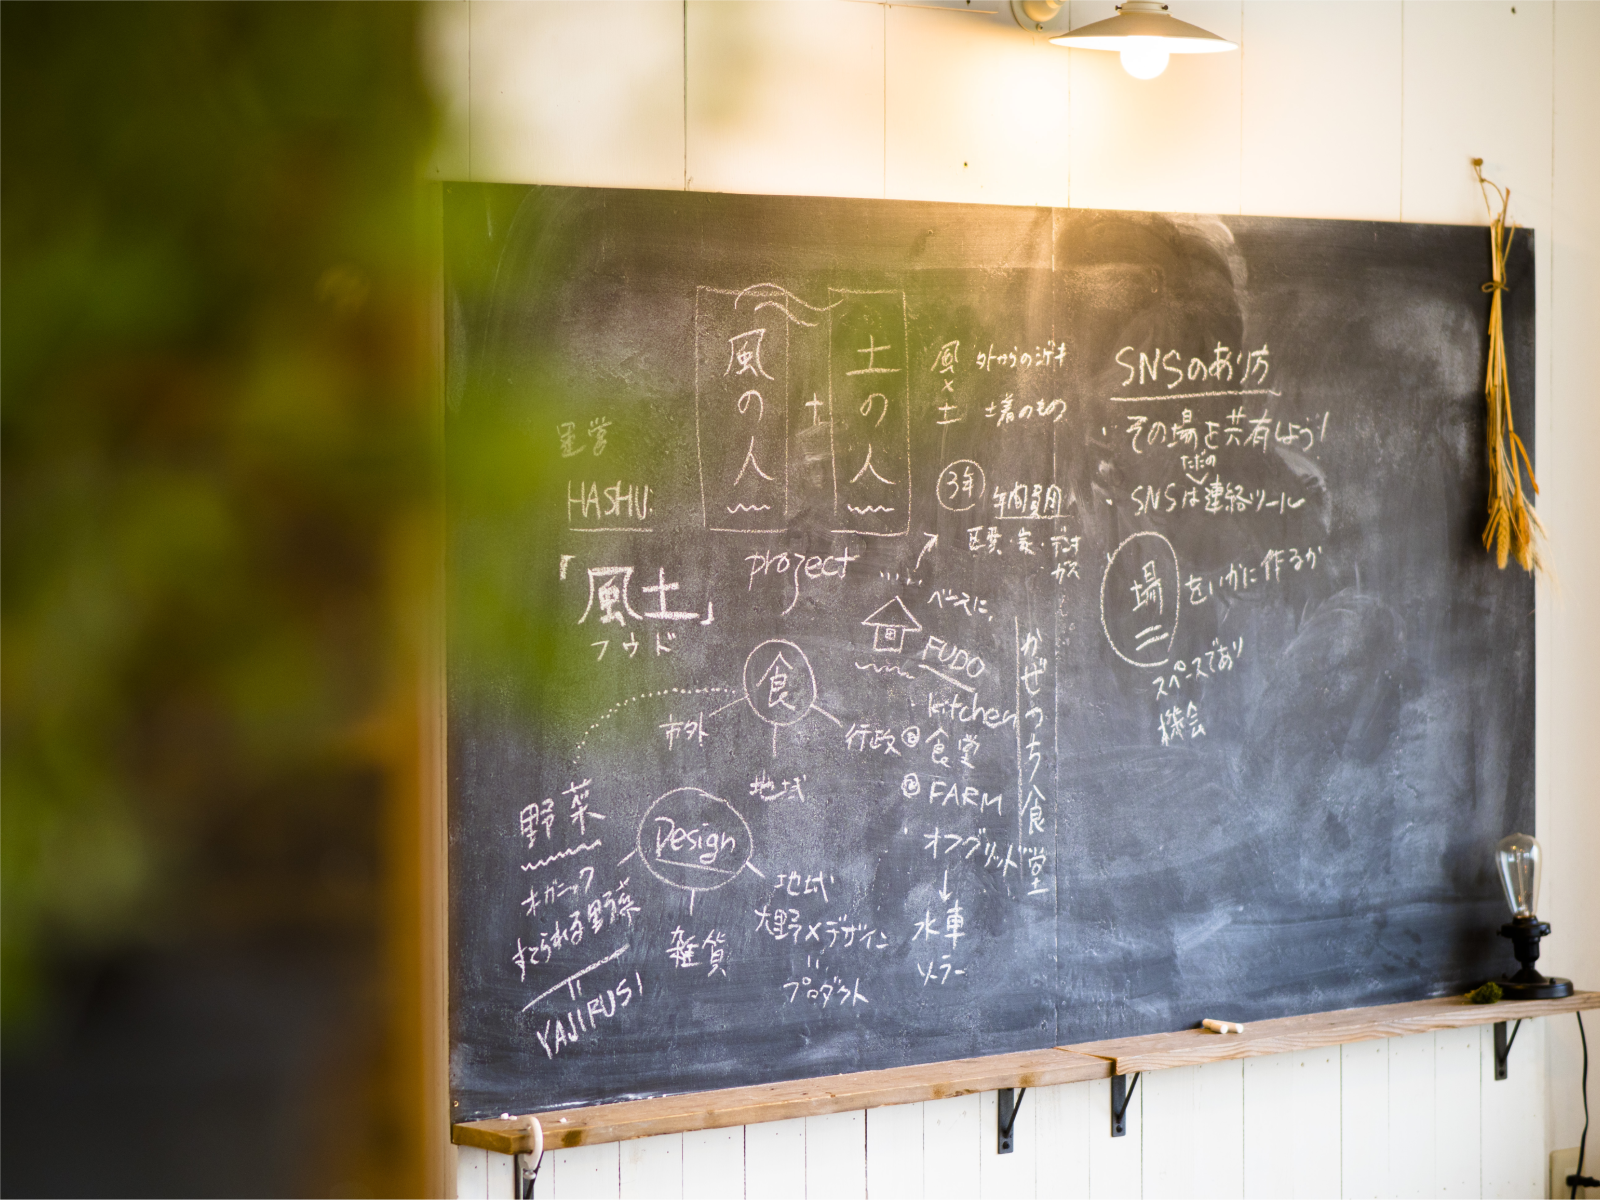 風の人
土
土の人
project
HASHU.
「風土」
フウド
食
市外
地域
行政
野菜
オガニック
すてられる野菜
YAJIRUSI
Design
雑貨
地域
大野×デザイン
プロダクト
風 外からのシゲキ
×
土 土着のもの
3年
年間費用
ベースに
FUDO
kitchen
食堂
FARM
オフグリッド
水車
ソーラー
かぜのち食堂
SNSのあり方
・その場を共有しよう!
ただの
・SNSは連絡ツール
場 をいかに作るか
スペースであり
機会